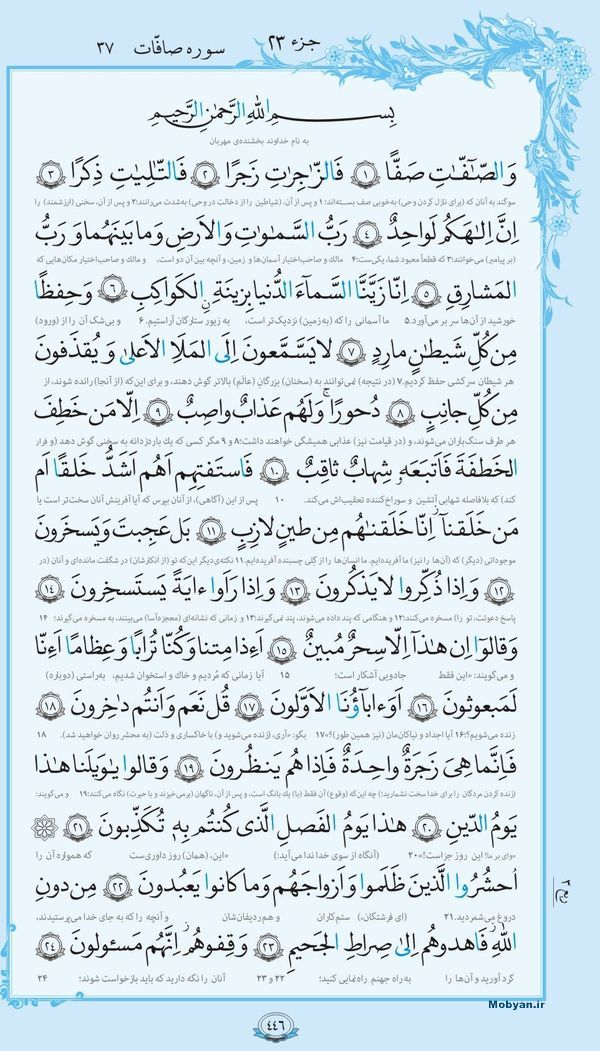 جزء ۲۳
سوره صافّات ۳۷
بِسمِ اللهِ الرَّحمٰنِ الرَّحیمِ
به نام خداوند بخشنده‌ی مهربان
وَالصّافّاتِ صَفًّا ﴿۱﴾ فَالزّاجِراتِ زَجرًا ﴿۲﴾ فَالتّالِیاتِ ذِکرًا ﴿۳﴾
سوگند به آنان که (برای نازل کردن وحی) به‌خوبی صف بسته‌اند؛ ۱ و پس از آن، (شیاطین را از دخالت در وحی) به‌شدت می‌رانند؛ ۲ و پس از آن، سخنی (ارزشمند) را
اِنَّ اِلٰهَکُم لَواحِدٌ ﴿۴﴾ رَبُّ السَّمٰوٰتِ وَالاَرضِ وَما بَینَهُما وَ رَبُّ
(بر پیامبر) می‌خوانند؛ ۳ که قطعاً معبود شما، یکی‌ست؛ ۴ مالک و صاحب اختیار آسمان‌ها و زمین، و آنچه بین آن دو است، و مالک و صاحب اختیار مکان‌هایی که
المَشارِقِ ﴿۵﴾ اِنّا زَیَّنَّا السَّماءَ الدُّنیا بِزینَةٍ الکَواکِبِ ﴿۶﴾ وَ حِفظًا
خورشید از آن‌ها سر بر می‌آورد. ۵ ما آسمانی را که (به‌زمین) نزدیک‌تر است، به زیور ستارگان آراستیم. ۶ و بی‌شک آن را از (ورود)
مِن کُلِّ شَیطٰنٍ مارِدٍ ﴿۷﴾ لا یَسَّمَّعونَ اِلَی المَلَاِ الاَعلیٰ وَ یُقذَفونَ
هر شیطان سرکشی حفظ کردیم. ۷ (در نتیجه) نمی‌توانند به (سخنان) بزرگانِ (عالَمِ) بالاتر گوش دهند، و برای این‌که (از آنجا) رانده شوند، از
مِن کُلِّ جانِبٍ ﴿۸﴾ دُحورًا وَ لَهُم عَذابٌ واصِبٌ ﴿۹﴾ اِلّا مَن خَطِفَ
هر طرف سنگ‌باران می‌شوند، و (در قیامت نیز) عذابی همیشگی خواهند داشت؛ ۸ و ۹ مگر کسی که یک بار دزدانه به سخنی گوش دهد (و فرار
الخَطفَةَ فَاَتبَعَهُ شِهابٌ ثاقِبٌ ﴿۱۰﴾ فَاستَفتِهِم اَهُم اَشَدُّ خَلقًا اَم
کند) که بلافاصله شهابی آتشین و سوراخ‌کننده تعقیبش می‌کند. ۱۰ پس از این (آگاهی)، از آنان بپرس که آیا آفرینش آنان سخت‌تر است یا
مَن خَلَقنا اِنّا خَلَقنٰهُم مِن طینٍ لازِبٍ ﴿۱۱﴾ بَل عَجِبتَ وَ یَسخَرونَ
موجوداتی (دیگر) که (آن‌ها را نیز) ما آفریده‌ایم. ما انسان‌ها را از گلی چسبنده آفریده‌ایم. ۱۱ نکته‌ی دیگر این‌که تو (از انکارشان) در شگفت مانده‌ای و آنان (در
﴿۱۲﴾ وَ اِذا ذُکِّروا لا یَذکُرونَ ﴿۱۳﴾ وَ اِذا رَاَوا ءایَةً یَستَسخِرونَ ﴿۱۴﴾
پاسخ دعوتت، تو را) مسخره می‌کنند؛ ۱۲ و هنگامی که پند داده می‌شوند، پند نمی‌گیرند؛ ۱۳ و زمانی که نشانه‌ای (معجزه‌آسا) می‌بینند، به مسخره می‌گیرند؛ ۱۴
وَ قالوا اِن هٰذا اِلّا سِحرٌ مُبینٌ ﴿۱۵﴾ اَءِذا مِتنا وَ کُنّا تُرابًا وَ عِظامًا اَءِنّا
و می‌گویند: «این فقط جادویی آشکار است؛ ۱۵ آیا زمانی که مُردیم و خاک و استخوان شدیم، به‌راستی (دوباره)
لَمَبعوثونَ ﴿۱۶﴾ اَوَءاباؤُنَا الاَوَّلونَ ﴿۱۷﴾ قُل نَعَم وَ اَنتُم داخِرونَ ﴿۱۸﴾
زنده می‌شویم؟؛ ۱۶ آیا اجداد و نیاکان‌مان (نیز همین طور)؟» ۱۷ بگو: «آری، (زنده می‌شوید و) با خاکساری و ذلت (به محشر روان خواهید شد). ۱۸
فَاِنَّما هِیَ زَجرَةٌ واحِدَةٌ فَاِذا هُم یَنظُرونَ ﴿۱۹﴾ وَ قالوا یٰوَیلَنا هٰذا
(زنده کردن مردگان را برای خدا سخت نشمارید؛) چه این‌که (وقوع) آن فقط (با) یک بانگ است، و پس از آن، ناگهان (برمی‌خیزند و با حیرت) نگاه می‌کنند؛ ۱۹ و می‌گویند:
یَومُ الدّینِ ﴿۲۰﴾ هٰذا یَومُ الفَصلِ الَّذی کُنتُم بِهِ تُکَذِّبونَ ﴿۲۱﴾
«وای بر ما! این روز جزاست!» ۲۰ (آنگاه از سوی خدا ندا می‌آید:) «این، (همان) روز داوری‌ست که همواره آن را
اُحشُرُوا الَّذینَ ظَلَموا وَ اَزواجَهُم وَ ما کانوا یَعبُدونَ ﴿۲۲﴾ مِن دونِ
دروغ می‌شمردید. ۲۱ (ای فرشتگان،) ستم‌کاران و هم‌ردیفان‌شان و آنچه را که به جای خدا می‌پرستیدند،
اللهِ فَاهدوهُم اِلیٰ صِراطِ الجَحیمِ ﴿۲۳﴾ وَ قِفوهُم اِنَّهُم مَسئولونَ ﴿۲۴﴾
گرد آورید و آن‌ها را به راه جهنم راه‌نمایی کنید؛ ۲۲ و ۲۳ آنان را نگه دارید که باید بازخواست شوند؛ ۲۴
۴۴۶
Mobyan.ir